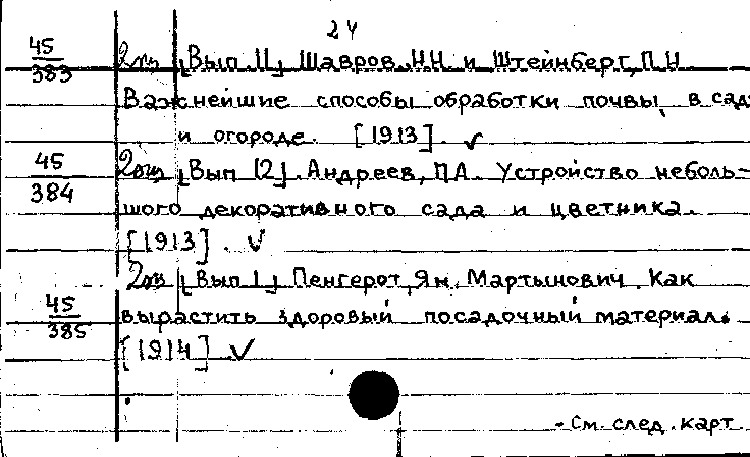 24
45/383 2 экз [Вып. 11] Шавров, Н.Н. и Штейнберг, П.Н.
Важнейшие способы обработки почвы в саду
и огороде. [1913]. ✓
45/384 2 экз [Вып 12]. Андреев, П.А. Устройство неболь-
шого декоративного сада и цветника.
[1913]. ✓
2 экз [Вып 1] Пенгерот, Ян Мартынович. Как
45/385 вырастить здоровый посадочный материал.
[1914] ✓
- См. след. карт.